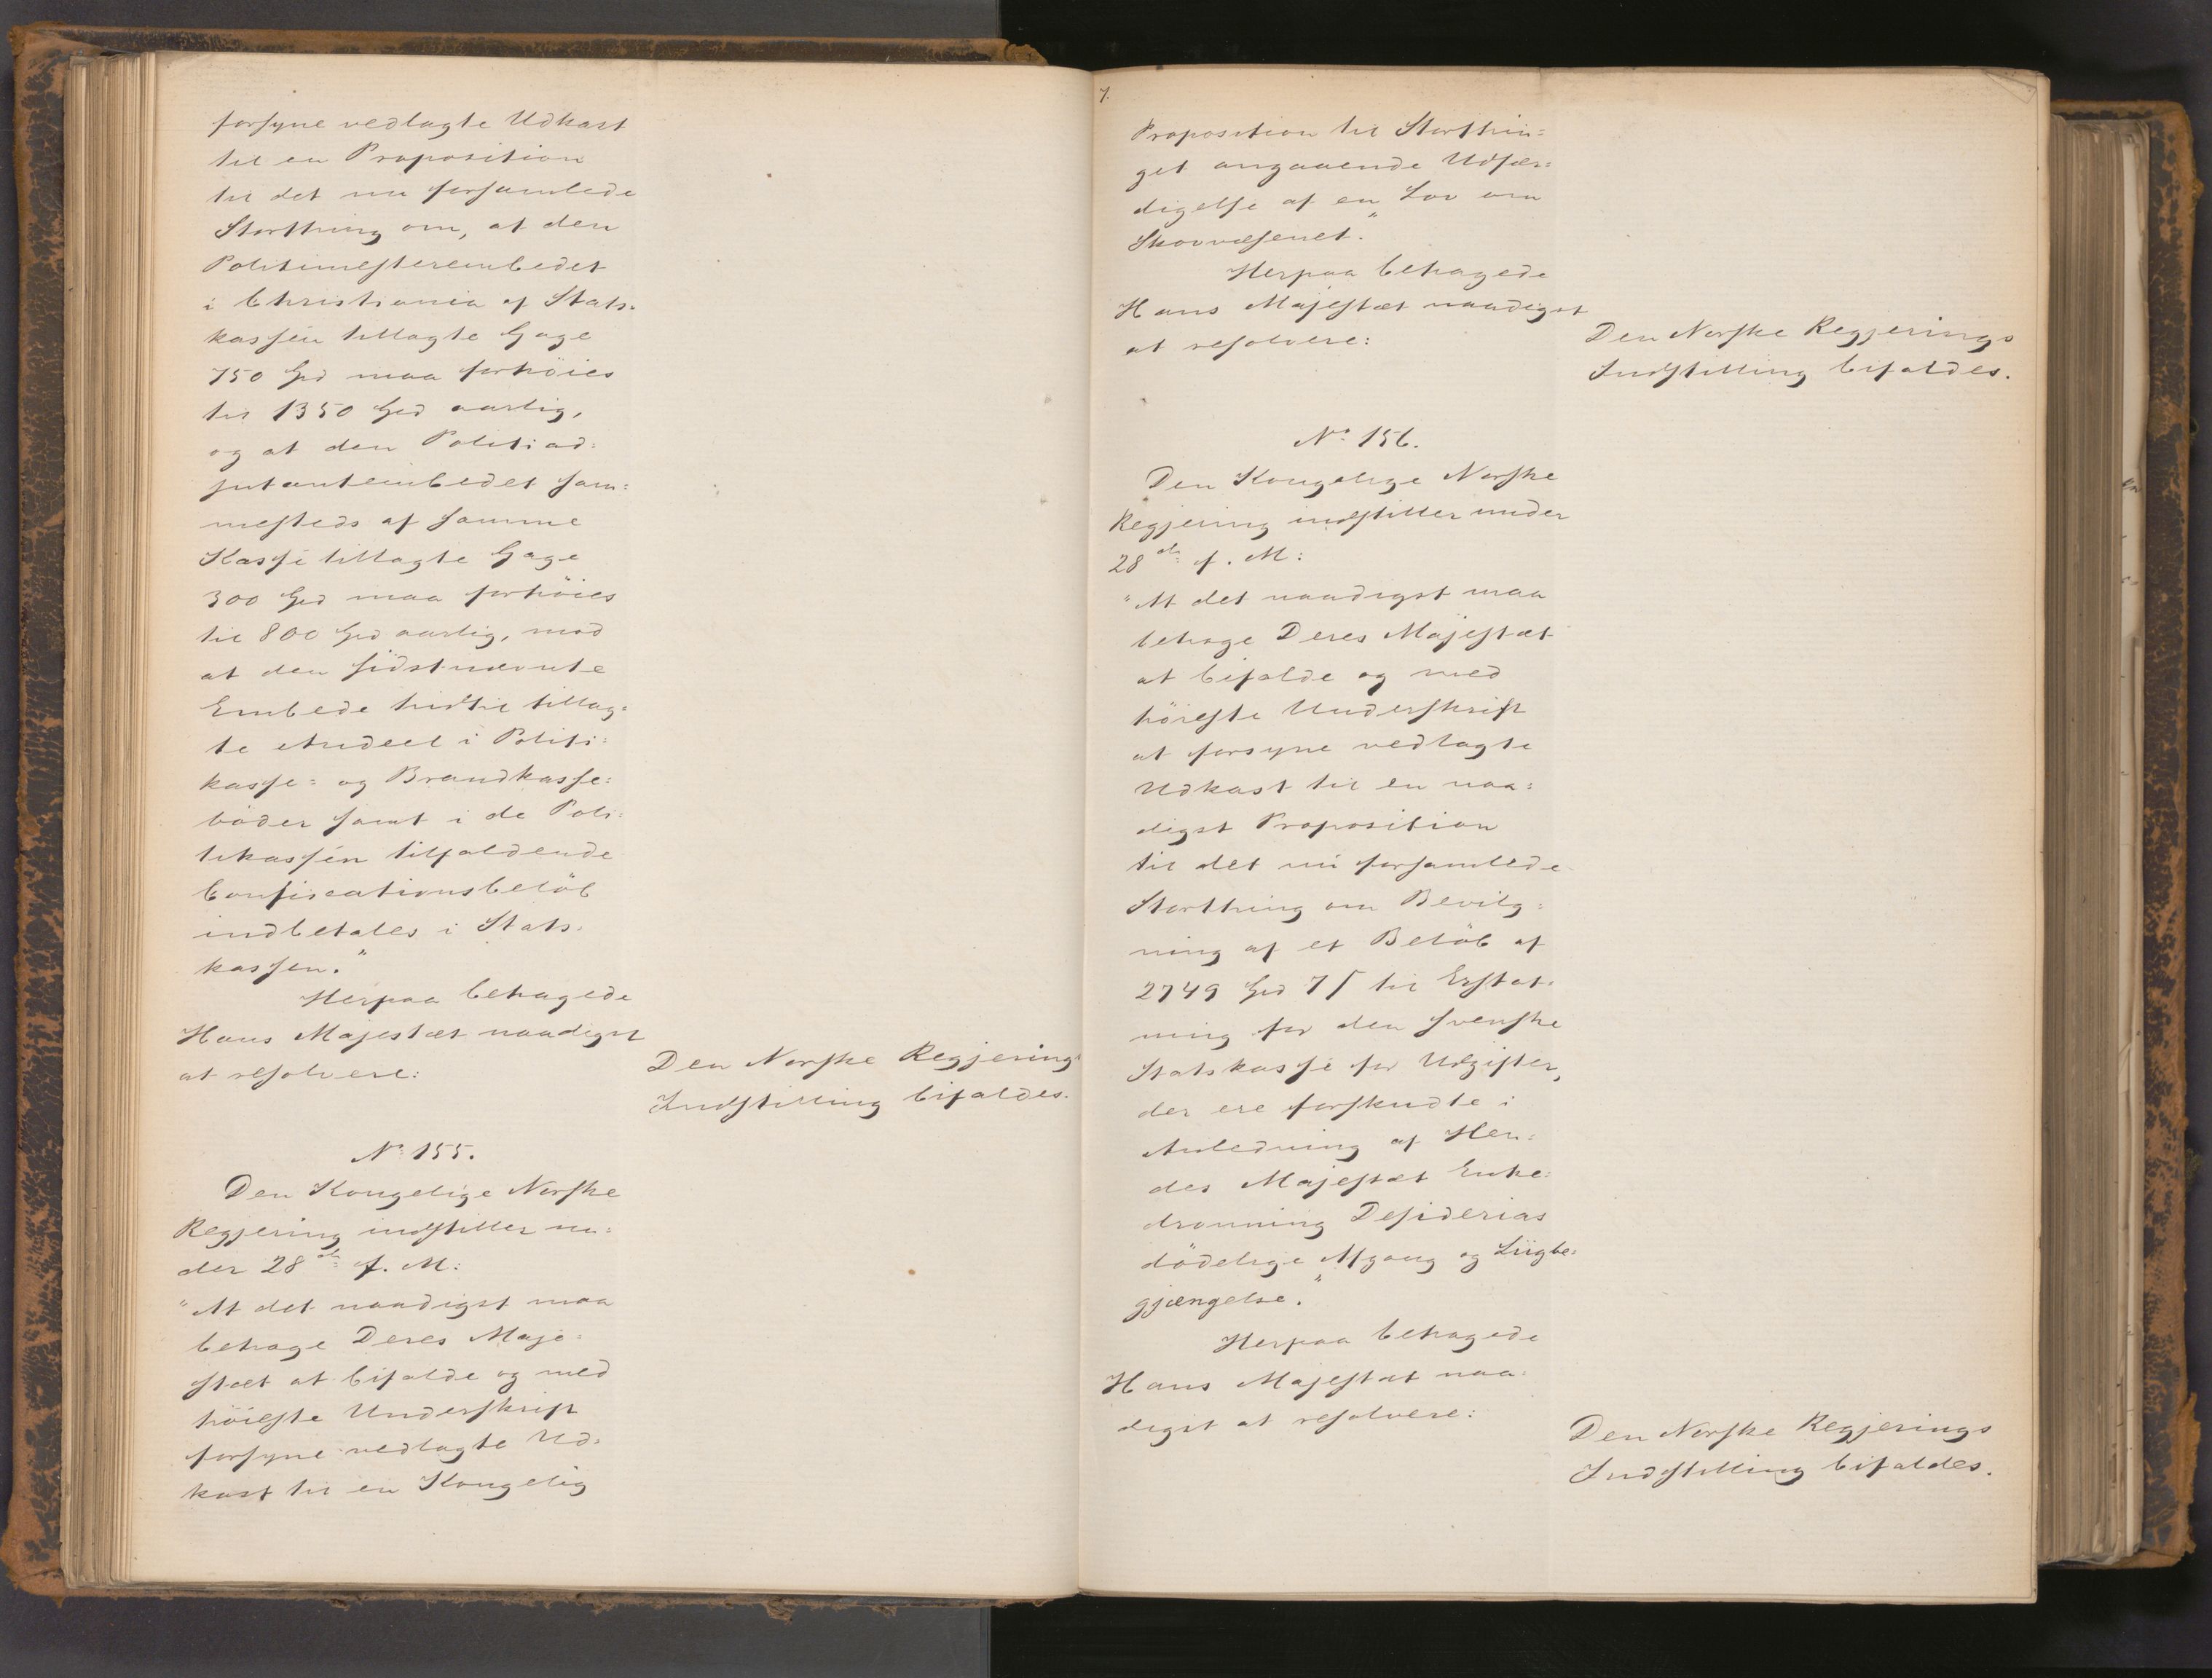 forsyne vedlagte Udkast
til en Proposition
til det nu forsamlede
Storthing om, at den
Politimesterembedet
i Christiania af Stats-
kassen tillagte Gage
750 Spd maa forhöies
til 1350 Spd aarlig,
og at den Politiad:
jutantembedet sam:
mesteds af samme
Kasse tillagte Gage
300 Spd maa forhöies
til 800 Spd aarlig, mod
at den sidstnævnte
Embede hidtil tillag:
te Andeel i Politi:
kasse= og Brandkasse:
böder samt i de Poli:
tikassen tilfaldende
Confiscationsbelöb
indbetales i Stats-
kassen."
Herpaa behagede
Hans Majestæt naadigst
at resolvere:
Den Norske Regjerings
Indstilling bifaldes.
No 155.
Den Kongelige Norske
Regjering indstiller un:
der 28de f. M:
"At det naadigst maa
behage Deres Maje:
stæt at bifalde og med
höieste Underskrift
forsyne vedlagte Ud-
kast til en Kongelig
7.
Proposition til Storthin=
get angaaende Udfær:
digelse af en Lov om
Skovvæsenet."
Herpaa behagede
Hans Majestæt naadigst
at resolvere:
Den Norske Regjerings
Indstilling bifaldes.
No 156.
Den Kongelige Norske
Regjering indstiller under
28de f. M:
"At det naadigst maa
behage Deres Majestæt
at bifalde og med
höieste Underskrift
at forsyne vedlagte
Udkast til en naa:
digst Proposition
til det nu forsamlede
Storthing om Bevilg:
ning af et Belöb af
2749 Spd 7 ß til Erstat-
ning for den svenske
Statskasse for Udgifter,
der ere forskudte i
Anledning af Hen:
des Majestæt Enke:
dronning Desiderias
dödelige Afgang og Liigbe:
gjængelse."
Herpaa behagede
Hans Majestæt naa:
digst at resolvere:
Den Norske Regjerings
Indstilling bifaldes.